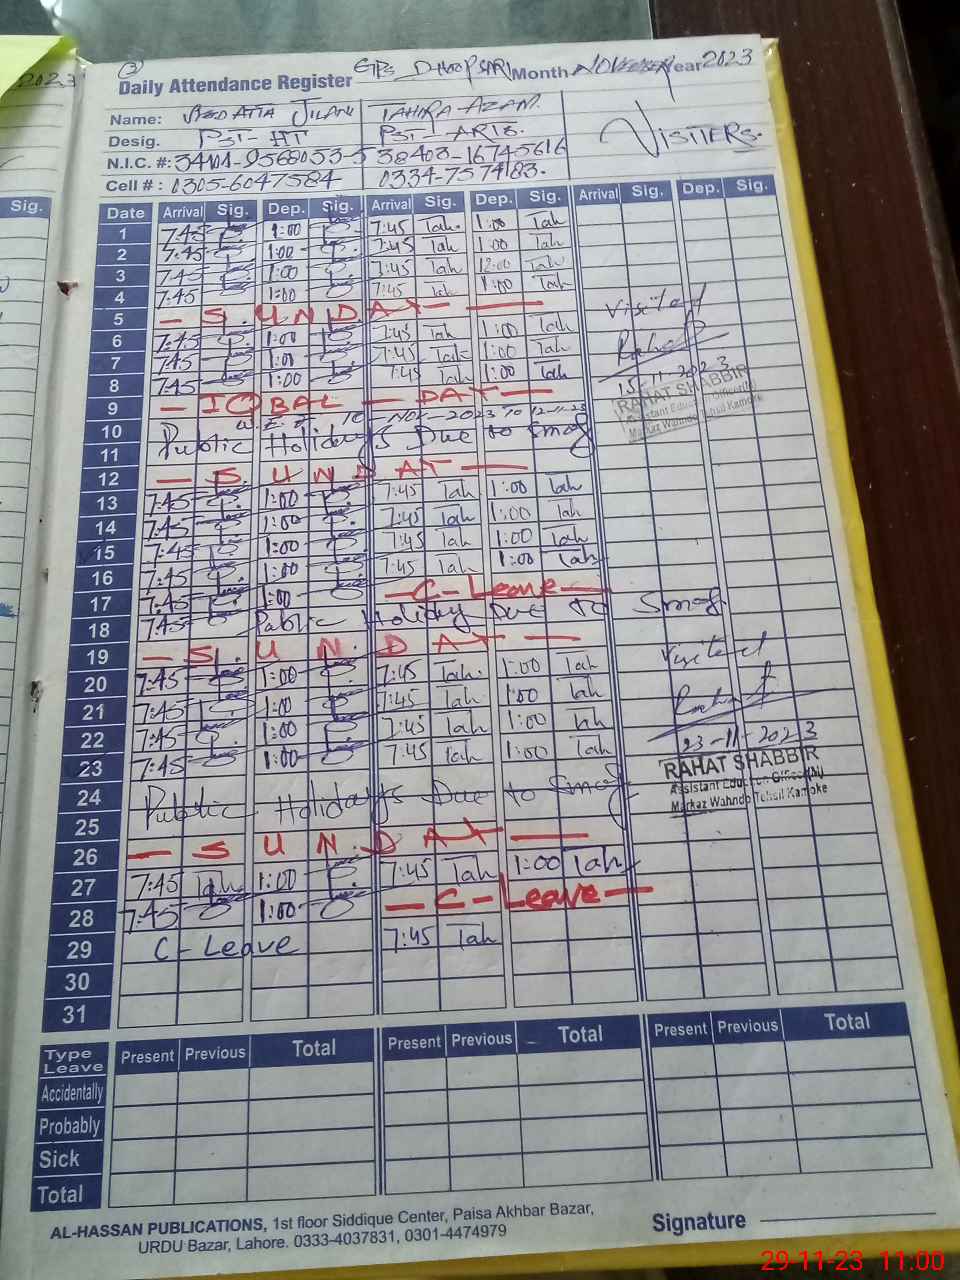 2023
Sig.
3
Daily Attendance Register GPS DHOOPSARI Month NOVEMBER Year 2023
Name: SYED ATTA JILANI TAHIRA AZAM.
VISITERS.
Desig. PST-HT PST-ARTS.
N.I.C. #: 38403-16745616
Cell # : 0305-6047584 0334-7574183.
Date Arrival Sig. Dep. Sig. Arrival Sig. Dep. Sig. Arrival Sig. Dep. Sig.
1 7:45 1:00 7:45 Tah. 1:00 Tah
2 7:45 1:00 7:45 Tah 1:00 Tah
3 7:45 1:00 7:45 Tah 12:00 Tah
4 7:45 1:00 7:45 Tah 1:00 Tah
Visited
5 — S. U N D A Y —
6 7:45 1:00 7:45 Tah 1:00 Tah
7 7:45 1:00 7:45 Tah 1:00 Tah
8 7:45 1:00 7:45 Tah 1:00 Tah
15-11-2023
RAHAT SHABBIR
Assistant Education Officer(M)
Markaz Wahndo Tehsil Kamoke
9 — IQBAL — DAY —
W.E.F 10-Nov-2023 TO 12-11-23
10 Public Holidays Due to Smog
11
12 — S. U N D A Y —
13 7:45 1:00 7:45 Tah 1:00 Tah
14 7:45 1:00 7:45 Tah 1:00 Tah
15 7:45 1:00 7:45 Tah 1:00 Tah
16 7:45 1:00 7:45 Tah 1:00 Tah
17 7:45 1:00 — C - Leave —
18 7:45 Public Holiday Due To Smog
19 — S. U N. D A Y —
Visited
20 7:45 1:00 7:45 Tah. 1:00 Tah
21 7:45 1:00 7:45 Tah 1:00 Tah
22 7:45 1:00 7:45 Tah 1:00 Tah
23 7:45 1:00 7:45 Tah 1:00 Tah
23-11-2023
RAHAT SHABBIR
Assistant Education Officer(M)
Markaz Wahndo Tehsil Kamoke
24 Public Holidays Due to Smog
25
26 — S U N. D A Y —
27 7:45 Tah 1:00 7:45 Tah 1:00 Tah
28 7:45 1:00 — C - Leave —
29 C - Leave 7:45 Tah
30
31
Type Leave Present Previous Total Present Previous Total Present Previous Total
Accidentally
Probably
Sick
Total
AL-HASSAN PUBLICATIONS, 1st floor Siddique Center, Paisa Akhbar Bazar,
URDU Bazar, Lahore. 0333-4037831, 0301-4474979
Signature
29-11-23 11:00